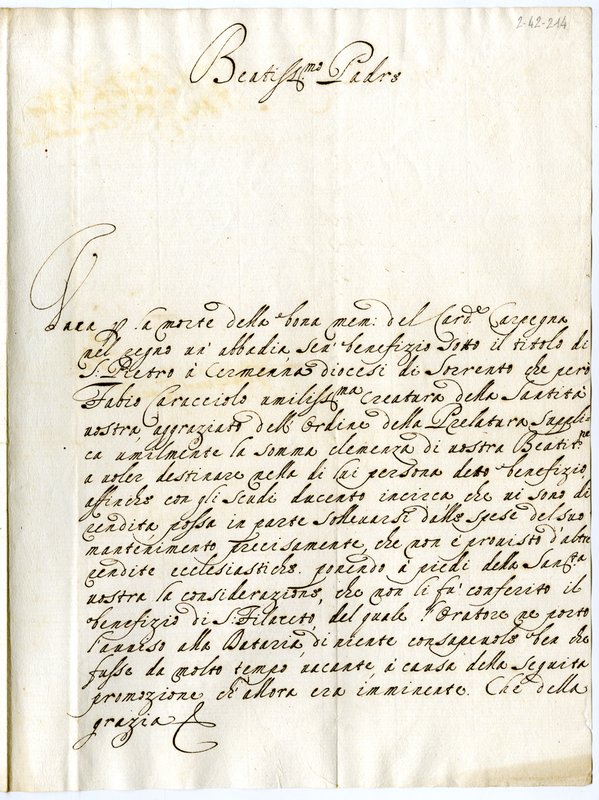 2-42-214
Beatiss.mo Padre
Vaca p la morte della bona mem: del Card.e Carpegna
nel regno un' abbadia, seu benefizio sotto il titolo di
S: Pietro à Cermenna diocesi di Sorrento che però
Fabio Caracciolo umiliss.ma Creatura della Santità
vostra, aggraziato dell' Ordine della Prelatura, suppli-
ca umilmente la somma clemenza di vostra Beatit.ne
a voler destinare nella di lui persona detto benefizio,
affinche con gli scudi ducento incirca, che vi sono di
rendita possa in parte sollevarsi dalle spese del suo
mantenimento precisamente, che non è provisto d'altre
rendite ecclesiastiche, ponendo à piedi della Sanctà
vostra la considerazione, che non li fù conferito il
benefizio di S: Filareto, del quale l'Oratore ne portò
l'avviso alla Dataria, di niente consapevole ben che
fusse da molto tempo vacante, à causa della seguita
promozione, ch' allora era imminente. Che della
grazia &